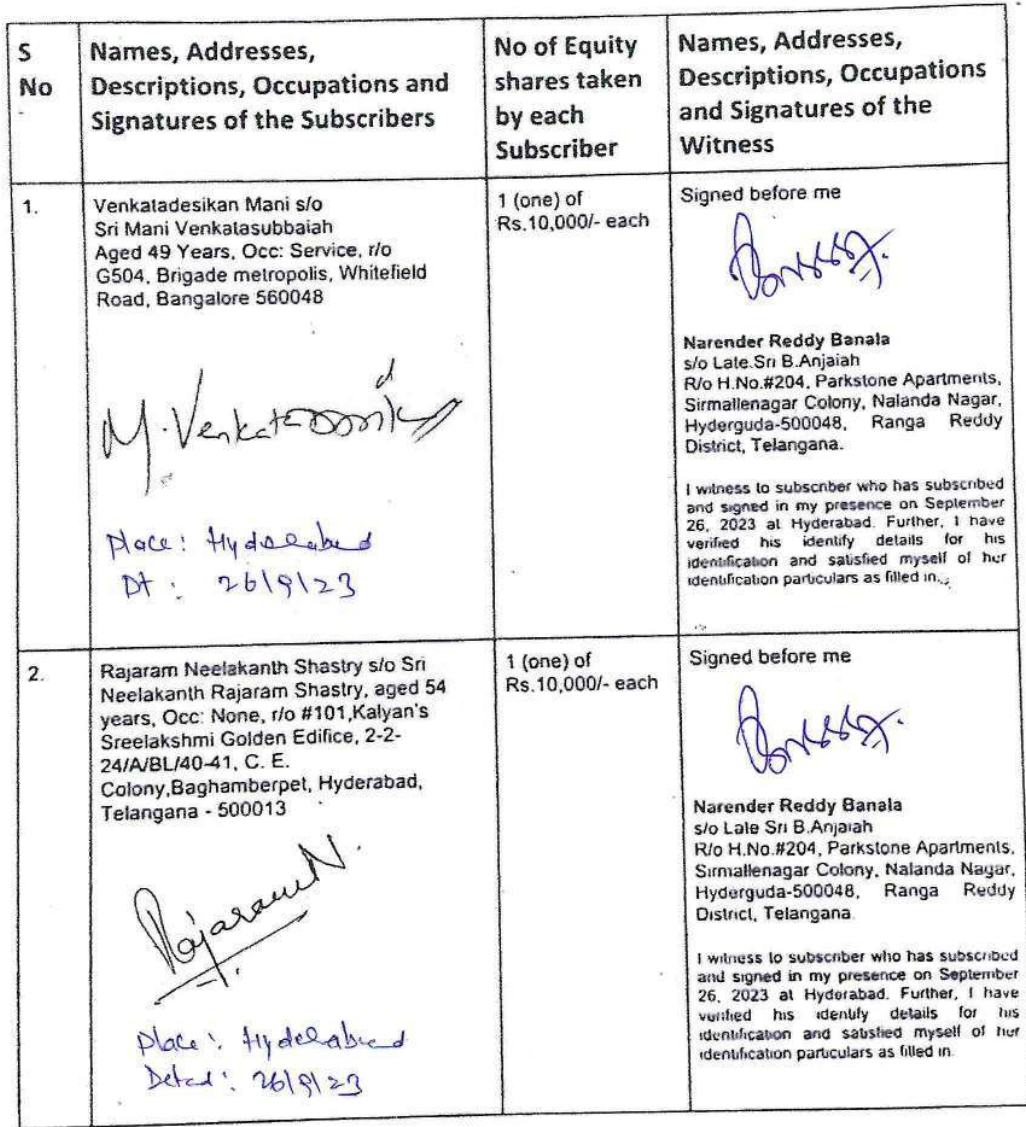 S No
Names, Addresses,
Descriptions, Occupations and
Signatures of the Subscribers
No of Equity
shares taken
by each
Subscriber
Names, Addresses,
Descriptions, Occupations
and Signatures of the
Witness
1.
Venkatadesikan Mani s/o
Sri Mani Venkatasubbaiah
Aged 49 Years, Occ: Service, r/o
G504, Brigade metropolis, Whitefield
Road, Bangalore 560048
M. Venkata
Place: Hyderabad
Dt: 26/9/23
1 (one) of
Rs.10,000/- each
Signed before me
Narender Reddy Banala
s/o Late.Sri B.Anjaiah
R/o H.No.#204, Parkstone Apartments,
Sirmallenagar Colony, Nalanda Nagar,
Hyderguda-500048, Ranga Reddy
District, Telangana.
I witness to subscriber who has subscribed
and signed in my presence on September
26, 2023 at Hyderabad. Further, I have
verified his identify details for his
identification and satisfied myself of her
identification particulars as filled in.
2.
Rajaram Neelakanth Shastry s/o Sri
Neelakanth Rajaram Shastry, aged 54
years, Occ: None, r/o #101,Kalyan's
Sreelakshmi Golden Edifice, 2-2-
24/A/BL/40-41, C. E.
Colony,Baghamberpet, Hyderabad,
Telangana - 500013
Rajaram N.
Place: Hyderabad
Dated: 26/9/23
1 (one) of
Rs.10,000/- each
Signed before me
Narender Reddy Banala
s/o Late Sri B.Anjaiah
R/o H.No.#204, Parkstone Apartments,
Sirmallenagar Colony, Nalanda Nagar,
Hyderguda-500048, Ranga Reddy
District, Telangana
I witness to subscriber who has subscribed
and signed in my presence on September
26, 2023 at Hyderabad. Further, I have
verified his identify details for his
identification and satisfied myself of her
identification particulars as filled in